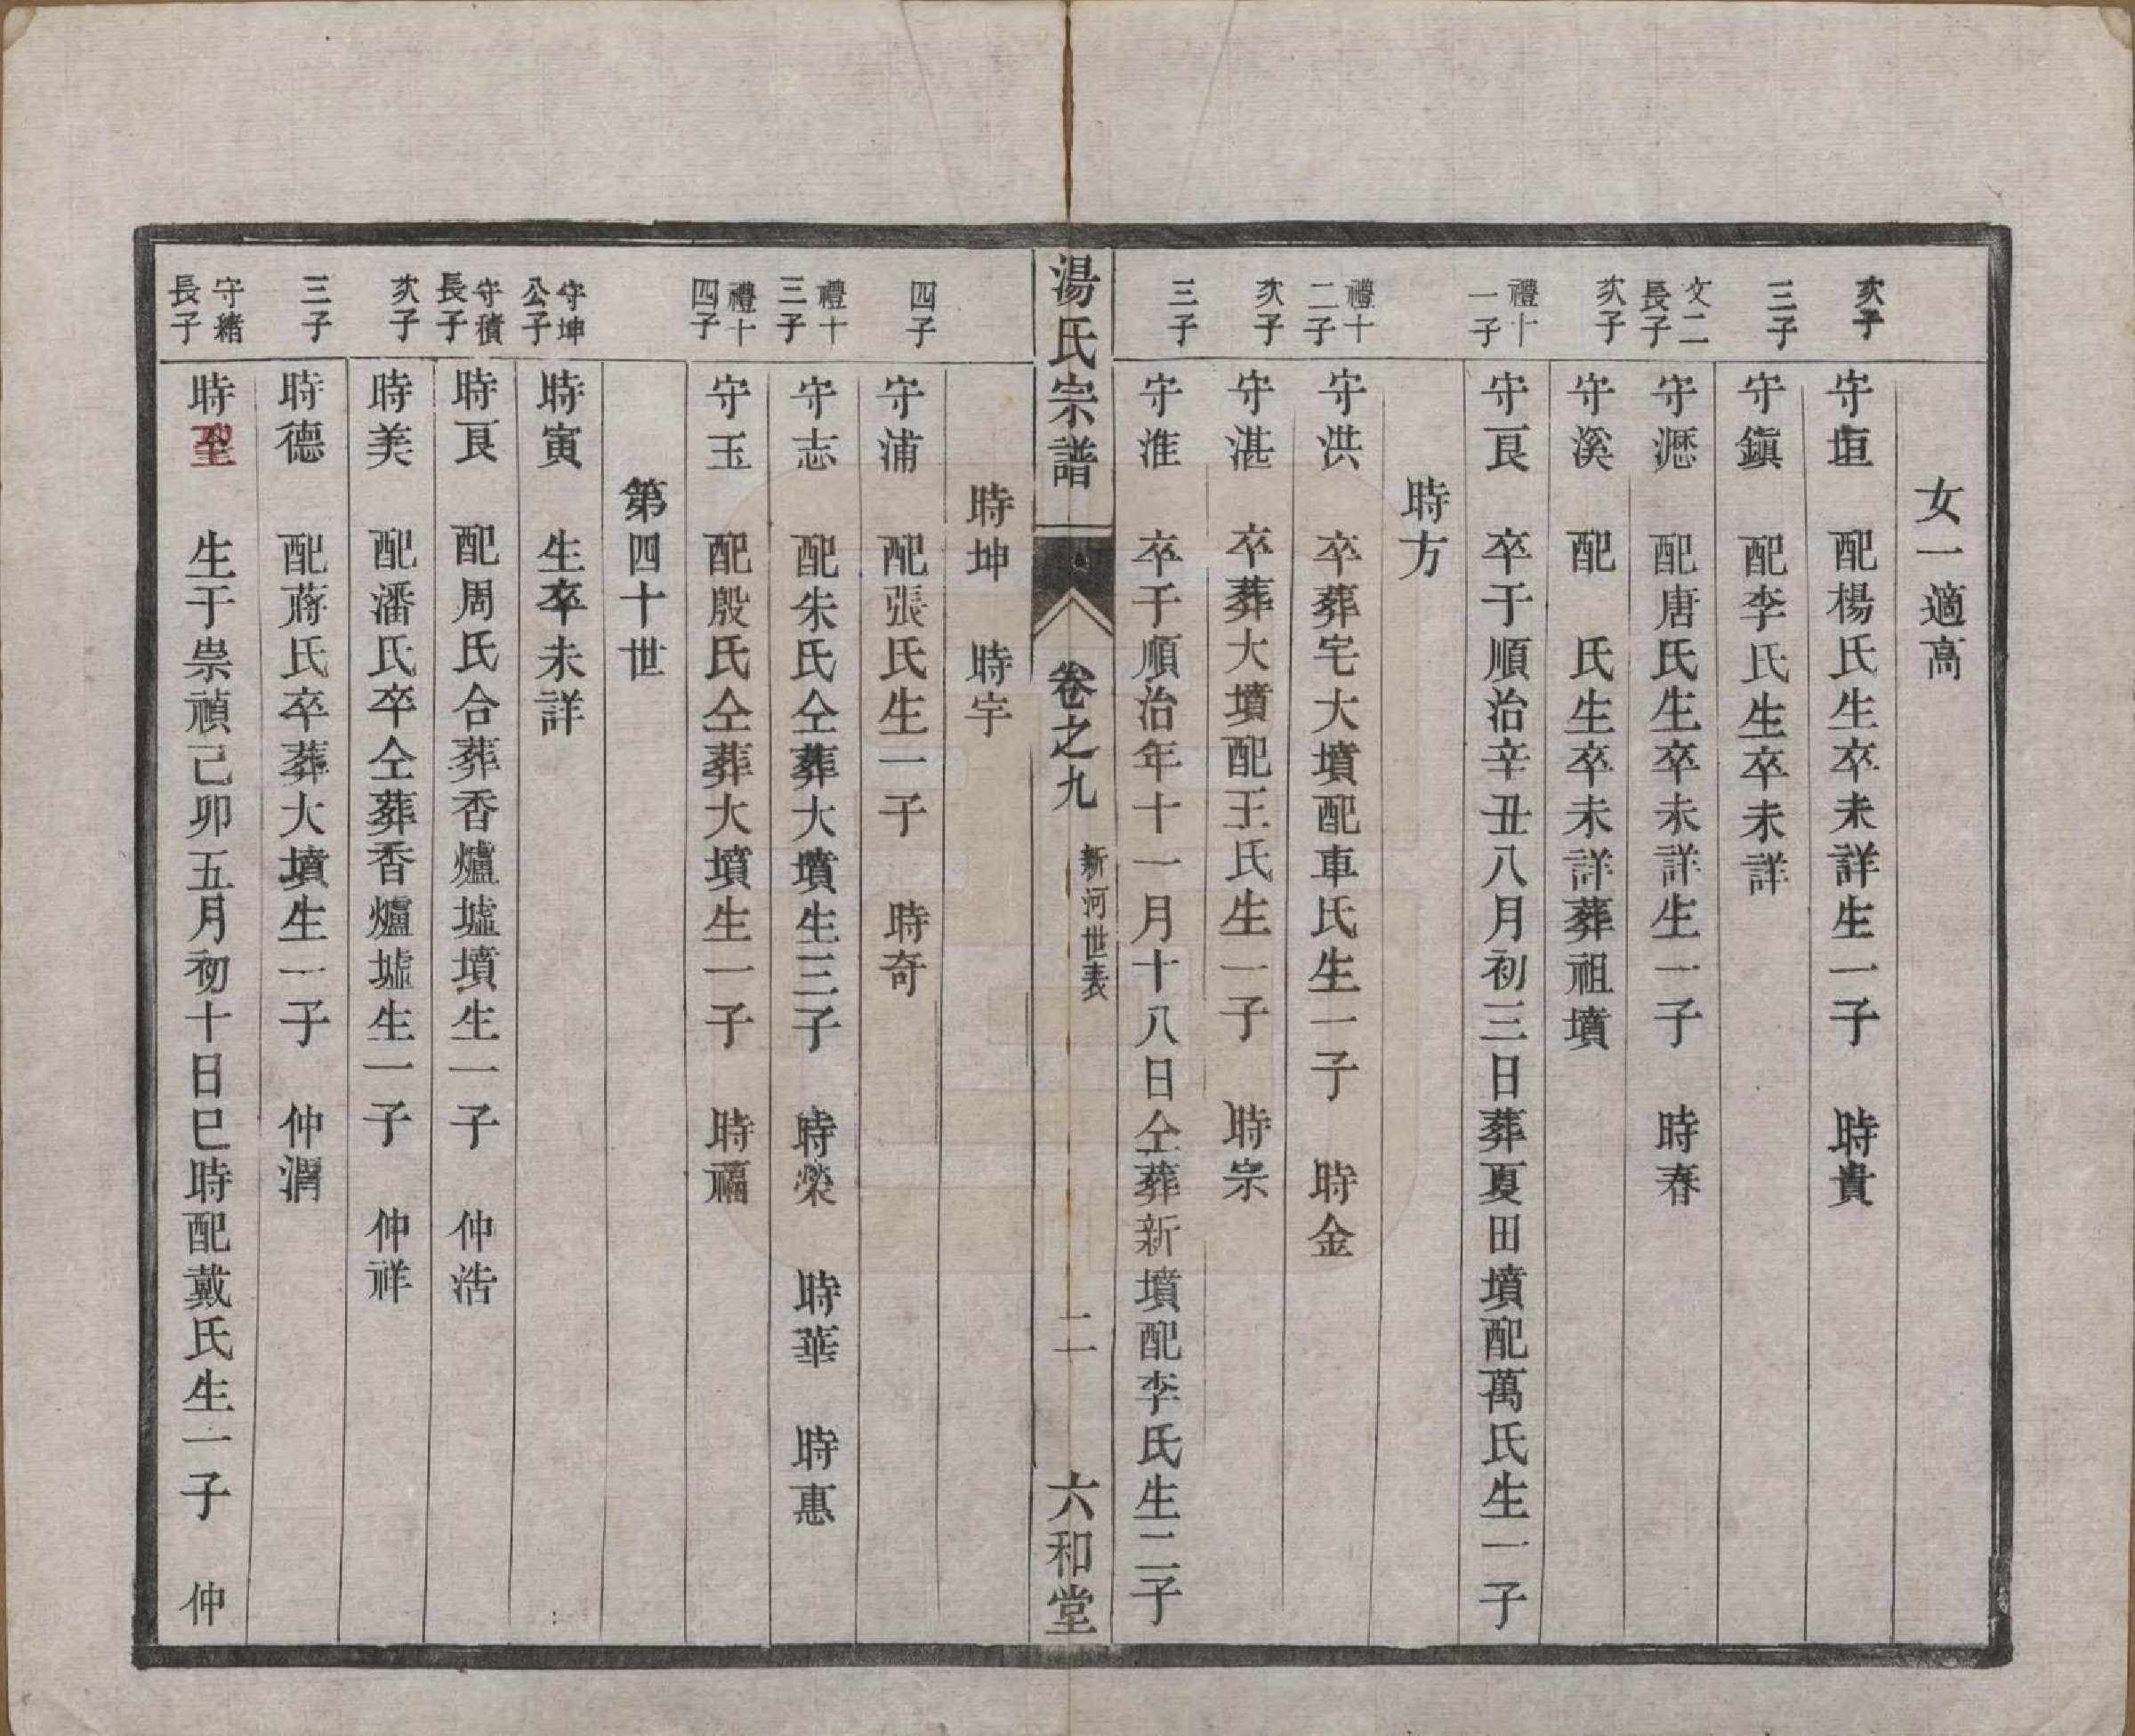 女一適高
次子 守垣 配楊氏生卒未詳生一子 時貴
三子 守鎮 配李氏生卒未詳
文二長子 守懣 配唐氏生卒未詳生一子 時春
次子 守溪 配 氏生卒未詳葬祖墳
禮十一子 守艮 卒于順治辛丑八月初三日葬夏田墳配萬氏生一子
時方
禮十二子 守洪 卒葬宅大墳配車氏生一子 時金
次子 守湛 卒葬大墳配王氏生一子 時宗
三子 守淮 卒于順治年十一月十八日仝葬新墳配李氏生二子
湯氏宗譜 卷之九 新河世表 二 六和堂
時坤 時宇
四子 守浦 配張氏生一子 時奇
禮十三子 守志 配朱氏仝葬大墳生三子 時榮 時華 時惠
禮十四子 守玉 配殷氏仝葬大墳生一子 時福
第四十世
守坤公子 時寅 生卒未詳
守積長子 時艮 配周氏合葬香爐墟墳生一子 仲浩
次子 時美 配潘氏卒仝葬香爐墟生一子 仲祥
三子 時德 配蔣氏卒葬大墳生一子 仲潤
守緒長子 時聖 生于崇禎己卯五月初十日巳時配戴氏生一子 仲